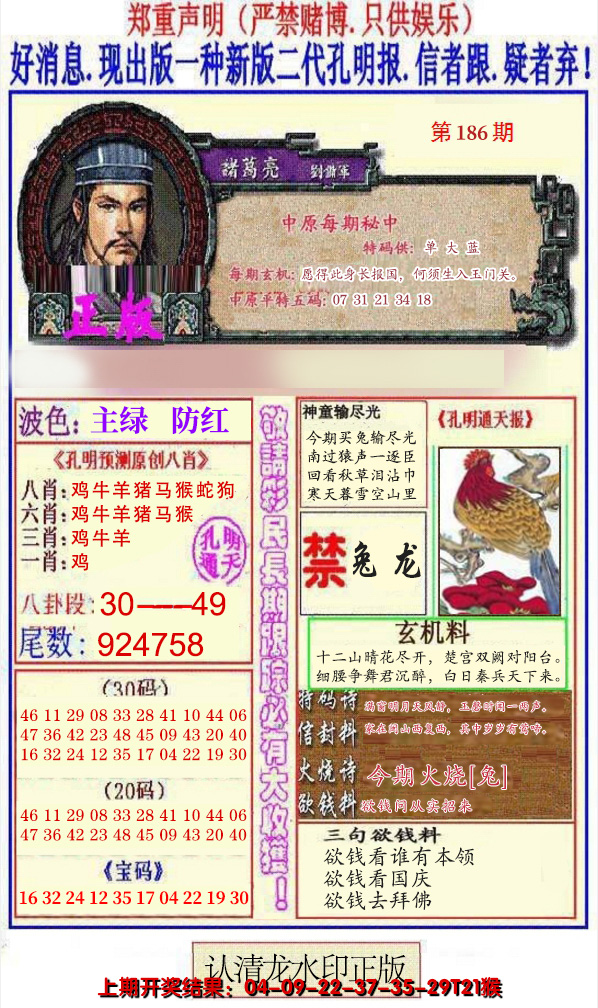 郑重声明（严禁赌博.只供娱乐）
好消息.现出版一种新版二代孔明报.信者跟.疑者弃！
第186期
諸葛亮
劉備軍
中原每期秘中
特码供：单大蓝
每期玄机：愿得此身长报国，何须生入玉门关。
中原平特五码：07 31 21 34 18
正版
波色：主绿 防红
《孔明预测原创八肖》
八肖：鸡牛羊猪马猴蛇狗
六肖：鸡牛羊猪马猴
三肖：鸡牛羊
一肖：鸡
孔明
通天
八卦段：30——49
尾数：924758
（30码）
46 11 29 08 33 28 41 10 44 06
47 36 42 23 48 45 09 43 20 40
16 32 24 12 35 17 04 22 19 30
（20码）
46 11 29 08 33 28 41 10 44 06
47 36 42 23 48 45 09 43 20 40
《宝码》
16 32 24 12 35 17 04 22 19 30
敬請彩民長期跟踪必有大收獲！
神童输尽光
今期买兔输尽光
南过猿声一逐臣
回看秋草泪沾巾
寒天暮雪空山里
《孔明通天报》
禁兔龙
玄机料
十二山晴花尽开，楚宫双阙对阳台。
细腰争舞君沉醉，白日秦兵天下来。
特码诗
信封料
满窗明月天风静，玉磬时闻一两声。
家在闽山西复西，其中岁岁有莺啼。
火烧诗
今期火烧[兔]
欲钱料
欲钱问从实招来
三句欲钱料
欲钱看谁有本领
欲钱看国庆
欲钱去拜佛
认清龙水印正版
上期开奖结果：04-09-22-37-35-29T21猴